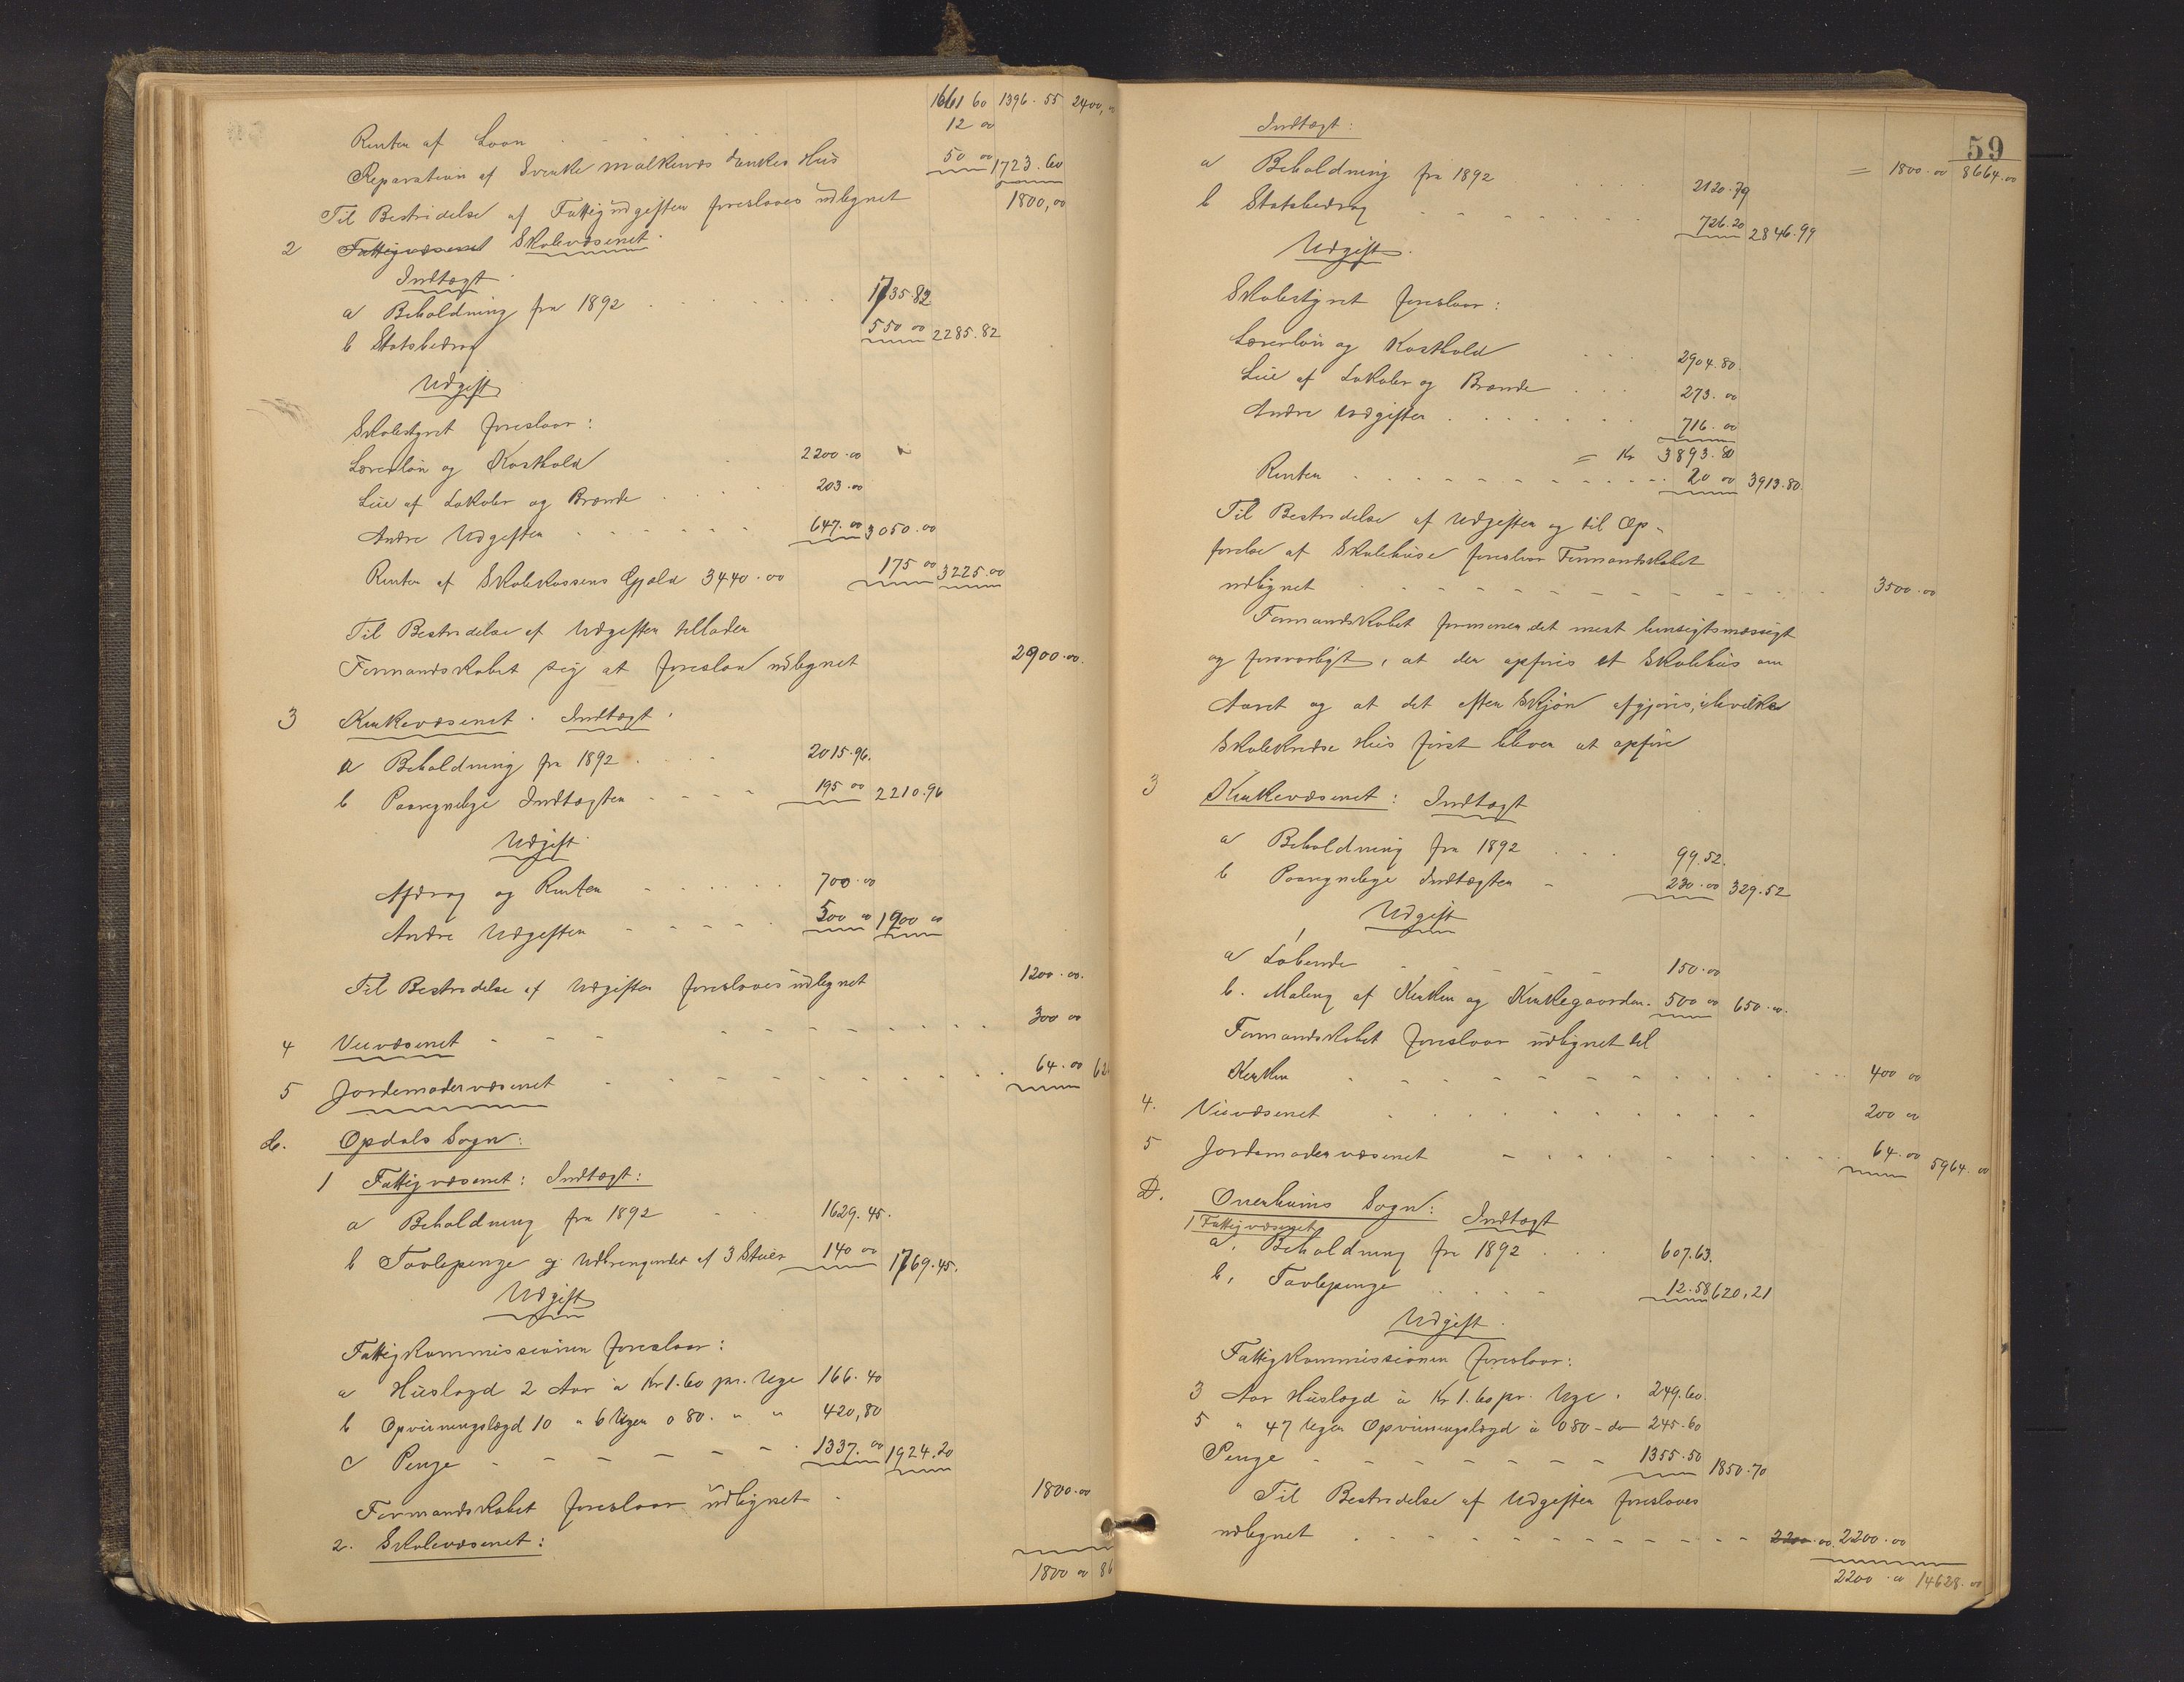 1661 60 1396.55 2400,
Renter af Laan 12 00
Reparation af Hus 50 00 1723.60
Til Bestridelse af Fattigudgifter foreslaaes udlignet 1800,00
2 Fattigvæsenet Skolevæsenet.
Indtægt
a Beholdning fra 1892 1735.82
b Statsbidrag 550 00 2285.82
Udgift
Skolestyret foreslaar:
Lærerløn og Kosthold 2200.00
Leie af Lokaler og Brænde 203.00
Andre Udgifter 647.00 3050.00
Renter af Skolekassens Gjæld 3440.00 175 00 3225.00
Til Bestridelse af Udgifter tillader
Formandskabet sig at foreslaa udlignet 2900.00.
3 Kirkevæsenet. Indtægt.
a Beholdning fra 1892 2015.96.
b Paaregnelige Indtægter 195 00 2210.96
Udgift
Afdrag og Renter 700.00
Andre Udgifter 500 00 1900 00
Til Bestridelse af Udgifter foreslaaes udlignet 1200.00.
4 Veivæsenet 300 00
5 Jordemodervæsenet 64.00 62
C. Opdals Sogn:
1 Fattigvæsenet: Indtægt:
a Beholdning fra 1892 1629.45.
b Tavlepenge og Udbringendet af 3 Stuer 140 00 1769.45.
Udgift
Fattigkommissionen foreslaar:
a Huslægd 2 Aar à Kr 1.60 pr. Uge 166.40
b Opvisningslægd 10 " 6 Uger 0 80. " " 420,80
c Penge 1337.00 1924.20
Formandskabet foreslaar udlignet 1800.00
2. Skolevæsenet:
1800 00 86
59
Indtægt: = 1800.00 8664.00
a Beholdning fra 1892 2120.79
b Statsbidrag 726.20 2846.99
Udgift.
Skolestyret foreslaar:
Lærerløn og Kosthold 2904.80.
Leie af Lokaler og Brænde 273.00
Andre Udgifter 716.00
= Kr 3893.80
Renter 20 00 3913.80.
Til Bestridelse af Udgifter og til Op-
førelse af Skolehuse foreslaar Formandskabet
udlignet 3500.00
Formandskabet formener det mest hensigtsmæssigt
og forsvarligt, at der opføres et Skolehus om
Aaret og at det efter Skjøn afgjøres, i hvilke
Skolekredse Hus først bliver at opføre
3 Kirkevæsenet: Indtægt
a Beholdning fra 1892 99.52.
b Paaregnelige Indtægter 230.00 329.52
Udgift
a Løbende 150.00
b. Maling af Kirken og Kirkegaarden. 500 00 650.00.
Formandskabet foreslaar udlignet til
Kirken 400 00
4. Veivæsenet 200 00
5 Jordemodervæsenet 64.00 5964.00
D. Onenheims Sogn: Indtægt
1 Fattigvæsenet
a. Beholdning fra 1892 607.63.
b, Tavlepenge 12.58 620,21
Udgift.
Fattigkommissionen foreslaar:
3 Aar Huslægd à Kr 1.60 pr. Uge. 249.60.
5 " 47 Uger Opvisningslægd à 0 80 - do 245.60
Penge 1355.50 1850.70
Til Bestridelse af Udgifter foreslaaes
udlignet 2200.00. 2200.00
2200.00 14628.00